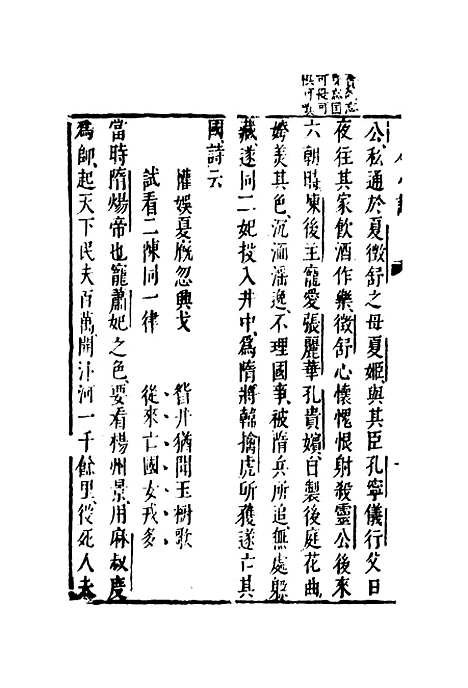 公私通於夏徵舒之母夏姬與其臣孔寧儀行父日
夜往其家飲酒作樂徵舒心懷愧恨射殺靈公後來
六朝時陳後主寵愛張麗華孔貴嬪自製後庭花曲
姱美其色沉湎淫逸不理國事被隋兵所追無處躱
藏遂同二妃投入井中為隋將韓擒虎所獲遂亡其
國詩云
懽娛夏廐忽興戈
眢井猶聞玉樹歌
試看二陳同一律
從來亡國女戎多
當時隋煬帝也寵蕭妃之色要看楊州景用麻叔度
爲帥起天下民夫百萬開汴河一千餘里役死人夫